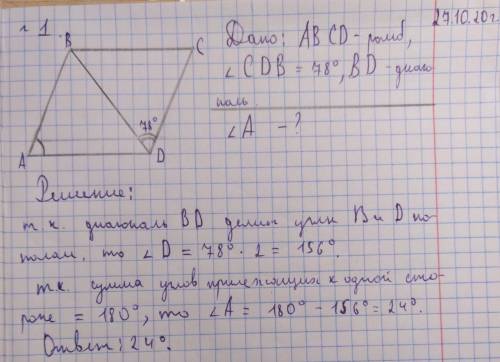 27.10.20г.
г 1.
B
C
78°
A
D
Дано: ABCD - ромб,
∠CDB = 78°, BD - диаго
наль.
∠A - ?
Решение:
т.к. диагональ BD делит углы B и D по-
полам, то ∠D = 78° · 2 = 156°.
т.к. сумма углов прилежащих к одной сто-
роне = 180°, то ∠A = 180° - 156° = 24°.
Ответ: 24°.